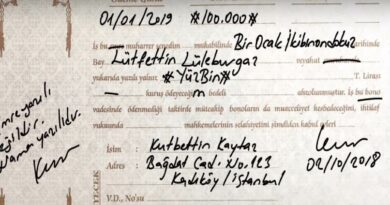 01/01/2019 #100.000#
İş bu muharrer senedim mukabilinde Bir Ocak İkibinondokuz
Bay Lütfettin Lüleburgaz veyahut
yukarıda yazılı yalnız #YüzBin# T. Lirası
kuruş ödeyeceğim m bedeli ahzolunmuştur. İş bu bono
vadesinde ödenmediği taktirde müteakip bonoların da muacceliyet kesbedeceğini, ihtilaf
vukuunda mahkemelerinin selahiyetini şimdiden kabul ederim
İsim : Kutbettin Kaytaz
Adres : Bağdat Cad. No.123
Kadıköy / İstanbul
V.D., No'su
02/10/2018